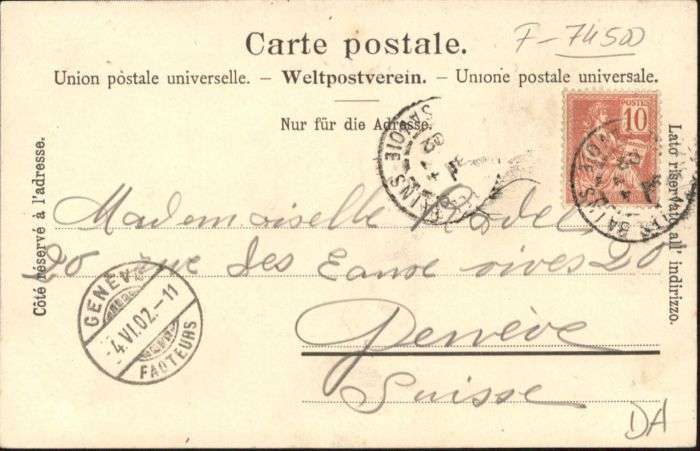 F-74500
Carte postale.
Union postale universelle. – Weltpostverein. – Unione postale universale.
Nur für die Adresse.
Côté réservé à l'adresse.
Lato riservato all' Indirizzo.
POSTES
10
SAVOIE
BAINS
SAVOIE
BAINS
Mademoiselle
20 rue des Eaux vives 20
Genève
Suisse
GENÈVE
-4.VI.02.-11
FACTEURS
DA